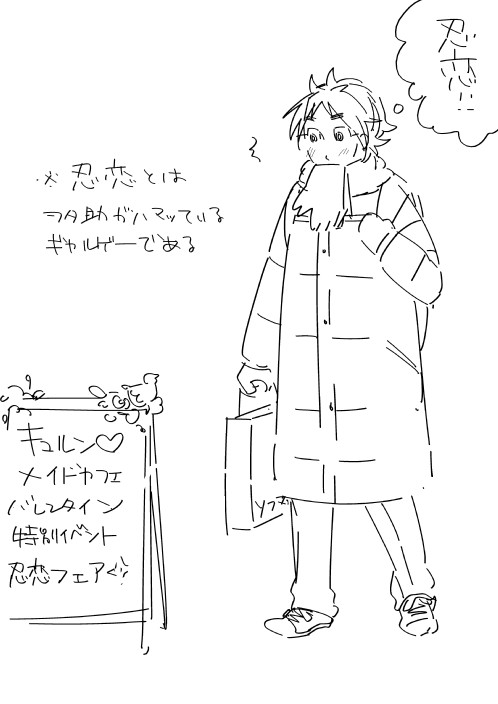 忍恋!!
※忍恋とは
ヲタ助がハマッている
ギャルゲーである
キュルン♡
メイドカフェ
バレンタイン
特別イベント
忍恋フェア